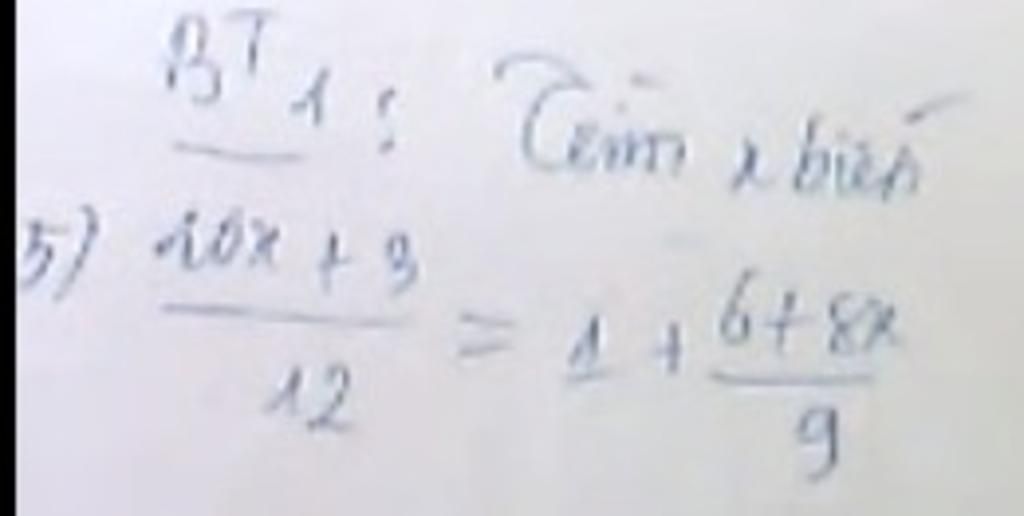 BT 1: Tìm x biết
5) \frac{10x + 3}{12} = 1 + \frac{6 + 8x}{9}